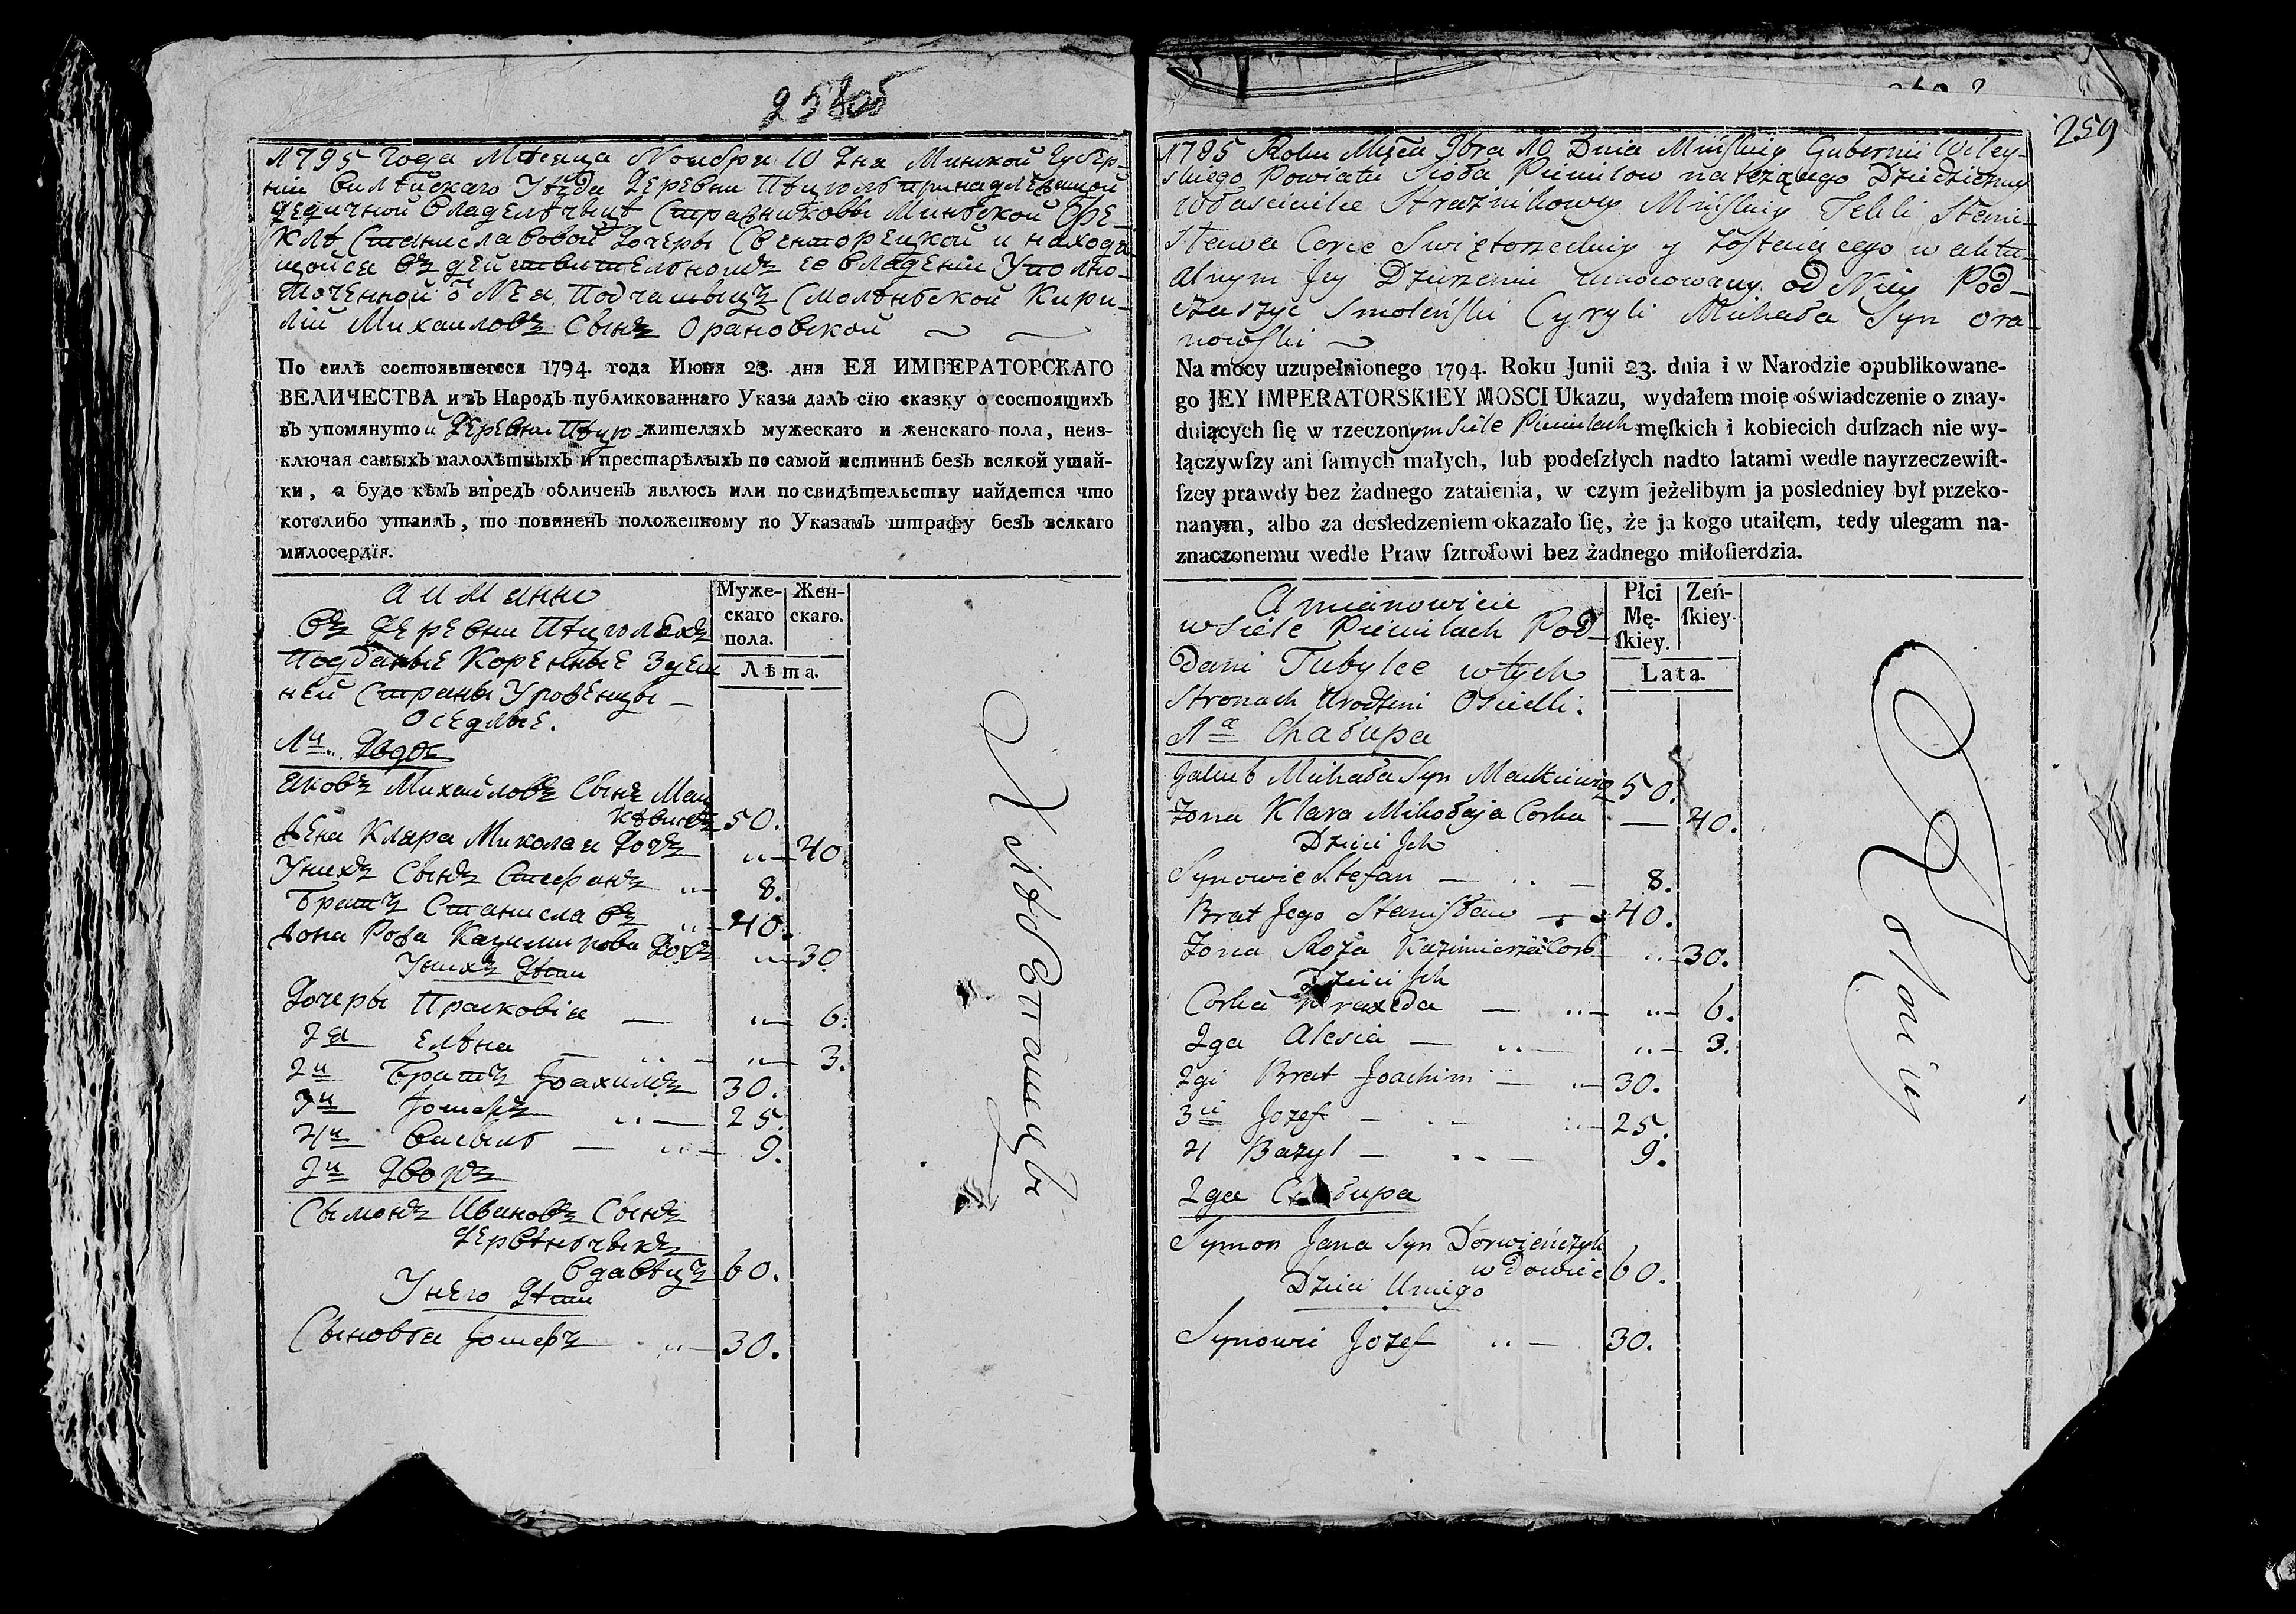 258об
1795 года Мѣсяца Ноября 10 Дня Минской Губер-
ніи Вилѣйскаго Уѣзда Деревни Пѣцюль принадлежащой
дедичной Владелѣчыцѣ Стражниковы Минской Фе-
клѣ Станиславовой Дочеры Свенторецкой и находя-
щойся въ действительномъ ее владеніи Уполно-
моченной о Нея Подчашыцъ Смоленской Кири-
лій Михаиловъ Сынъ Орановской
По силѣ состоявшегося 1794. года Июня 23. дня ЕЯ ИМПЕРАТОРСКАГО
ВЕЛИЧЕСТВА и въ Народъ публикованнаго Указа далъ сїю сказку о состоящихъ
въ упомянутой Деревни Пѣцю. жителяхъ мужескаго и женскаго пола, неиз-
ключая самыхъ малолѣтныхъ и престарѣлыхъ по самой истиннѣ безъ всякой утай-
ки, а буде кѣмъ впредъ обличенъ явлюсь или по свидѣтельству найдется что
коголибо утаилъ, то повиненъ положенному по Указамъ штрафу безъ всякаго
милосердїя.
а имянно
Въ деревни Пѣцюлѣхъ
Подданые Коренные Здеш
ней Страны Уроженцы
Оседлые.
Муже-
скаго
пола.
Жен-
скаго.
Лѣта.
1й
Яковъ Михайловъ Сынъ Мац
кѣвичъ 50.
Жена Клара Миколая Дочъ 40
Унихъ Сынъ Стефанъ 8.
Братъ Станиславъ 40.
Жона Рожа Казимирова Дочъ 30
Унихъ Дѣти
Дочеры Прасковія 6.
2я Елѣна 3.
2й Братъ Іоахимъ 30.
3й Іошефъ 25.
4й Василь 9.
2й Дворъ
Сымонъ Ивановъ Сынъ
Дервѣньчыкъ
вдавѣцъ 60.
Унего Дѣти
Сыновья Іошефъ 30.
259
1795 Roku Mięca 9bra 10 Dnia Minſkiey Gubernii Wiley-
skiego Powiatu Sioła Pieciulow należącego Dziedziczney
Włascicielce Strażnikowey Minſkiey Tekli Stani-
sława Corce Swiętorzeckiey y zostaiącego w aktu-
alnym Jey Dzierżeniu Umocowany od Niey Pod-
czaszyc Smoleński Cyryli Michała Syn Ora-
nowſki
Na mocy uzupełnionego 1794. Roku Junii 23. dnia i w Narodzie opublikowane-
go JEY IMPERATORSKIEY MOSCI Ukazu, wydałem moie oświadczenie o znay-
duiących ſię w rzeczonym Siele Pieciulach męſkich i kobiecich duſzach nie wy-
łączywſzy ani ſamych małych, lub podeſzłych nadto latami wedle nayrzeczewiſt-
ſzey prawdy bez żadnego zataienia, w czym jeżelibym ja posledniey był przeko-
nanym, albo za dosledzeniem okazało ſię, że ja kogo utaiłem, tedy ulegam na-
znaczonemu wedle Praw ſztroſowi bez żadnego miłoſierdzia.
A mianowicie
w Siele Pieciulach Pod-
dani Tubylce w tych
Stronach Urodzeni Osiedli.
Płci
Mę-
ſkiey.
Zeń-
ſkiey.
Lata.
1a Chałupa
Jakub Michała Syn Mackiewicz 50.
Żona Klara Mikołaja Corka 40.
Dzieci Jch
Synowie Stefan 8.
Brat Jego Stanisław 40.
Żona Roża Kazimierza Cor 30.
Dzieci Jch
Corka Praxeda 6.
2ga Alesia 3.
2gi Brat Joachim 30.
3ci Jozef 25.
4 Bazyl 9.
2ga Chałupa
Symon Jana Syn Derwieńczyk
wdowiec 60.
Dzieci Uniego
Synowie Jozef 30.